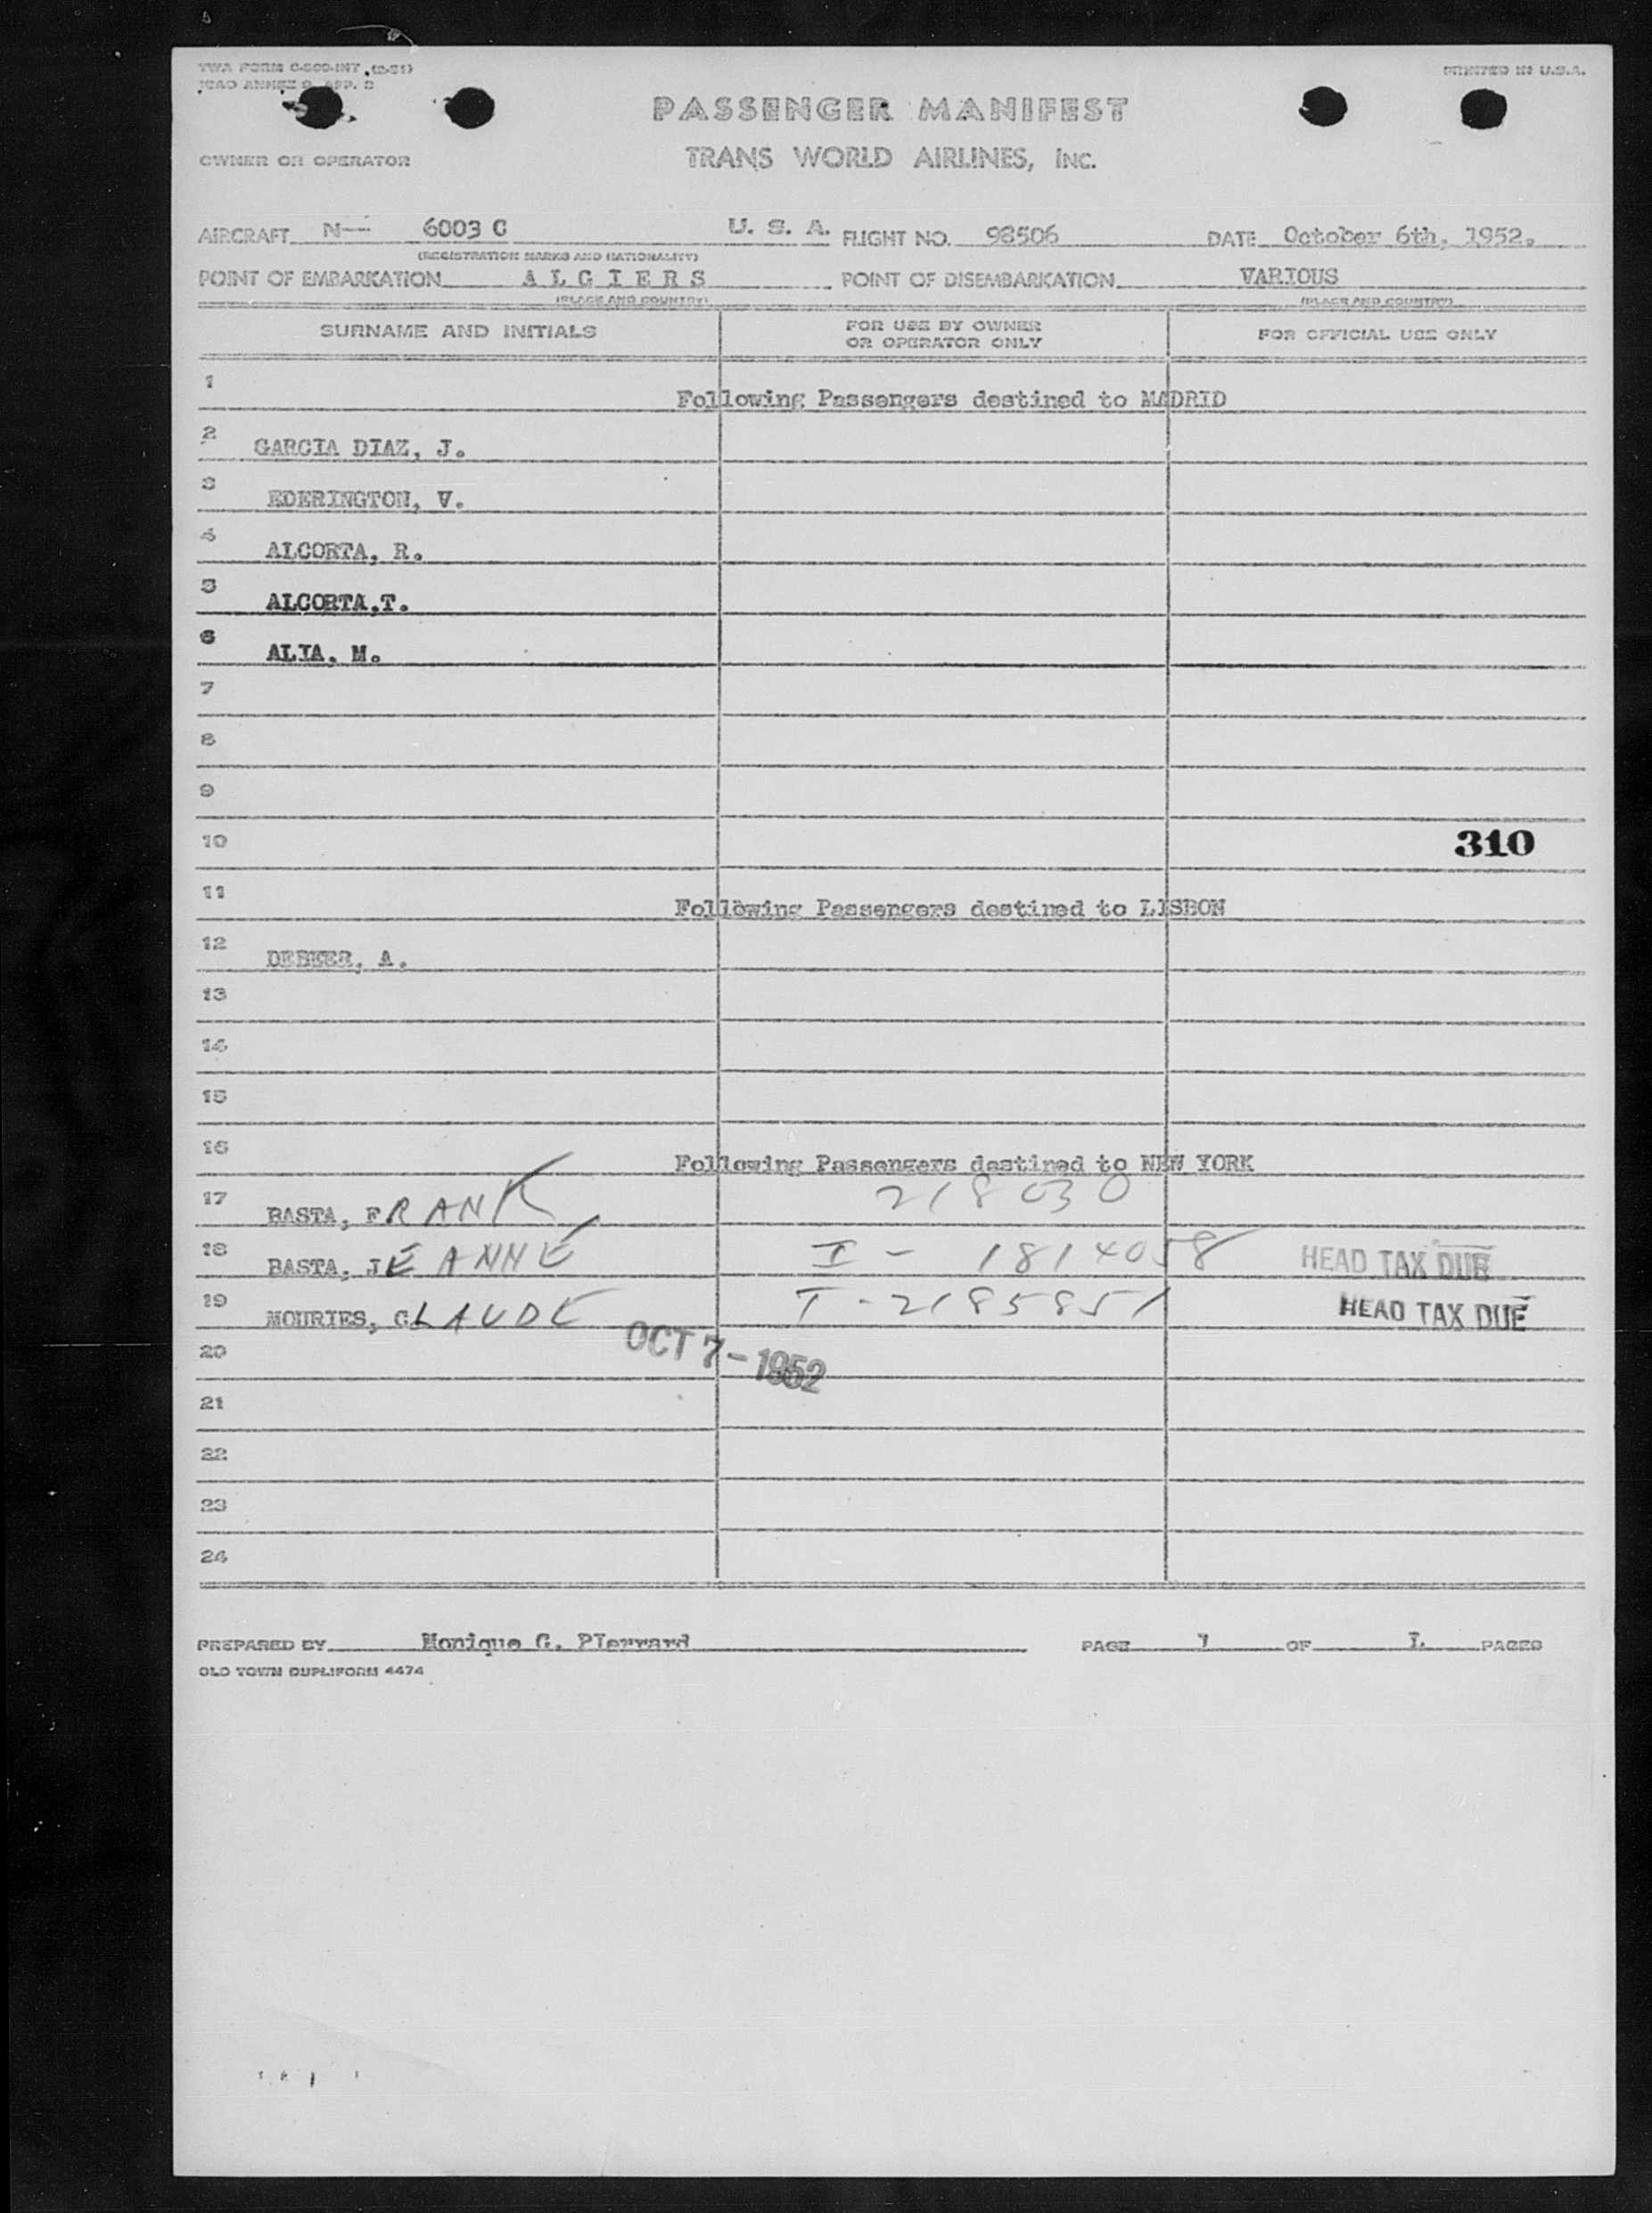 TWA FORM
ICAO ANNEX 9 APP. 
PRINTED IN U.S.A.
PASSENGER MANIFEST
OWNER OR OPERATOR
TRANS WORLD AIRLINES, INC.
AIRCRAFT N-- 6003 C U. S. A. FLIGHT NO. 98506 DATE October 6th, 1952.
(REGISTRATION MARKS AND NATIONALITY)
POINT OF EMBARKATION A L G I E R S POINT OF DISEMBARKATION VARIOUS
(PLACE AND COUNTRY) (PLACE AND COUNTRY)
SURNAME AND INITIALS FOR USE BY OWNER OR OPERATOR ONLY FOR OFFICIAL USE ONLY
1 Following Passengers destined to MADRID
2 GARCIA DIAZ, J.
3 EDERINGTON, V.
4 ALCORTA, R.
5 ALCORTA,T.
6 ALIA, M.
7
8
9
10 310
11 Following Passengers destined to LISBON
12 DEBEER, A.
13
14
15
16 Following Passengers destined to NEW YORK
17 BASTA, FRANK 218030
18 BASTA, JEANNE I - 1814058 HEAD TAX DUE
19 MOURIES, CLAUDE I - 2185851 HEAD TAX DUE
20 OCT 7 - 1952
21
22
23
24
PREPARED BY Monique G. PIerrard PAGE 1 OF 1. PAGES
OLD TOWN DUPLIFORM 4474